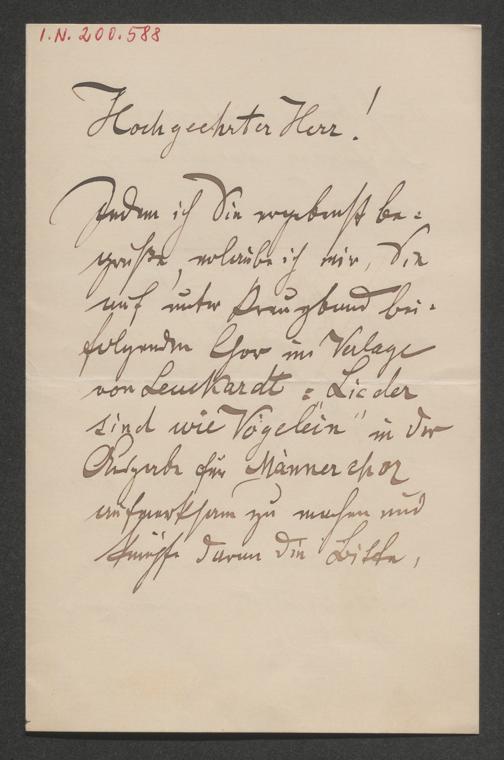 I.N. 200.588
Hochgeehrter Herr!
Indem ich Sie ergebenst be-
grüße, erlaube ich mir, Sie
auf unter Kreuzband bei-
folgenden Chor im Verlage
von Leuckardt = "Lieder
sind wie Vögelein" in der
Ausgabe für Männerchor
aufmerksam zu machen und
knüpfe daran die Bitte,